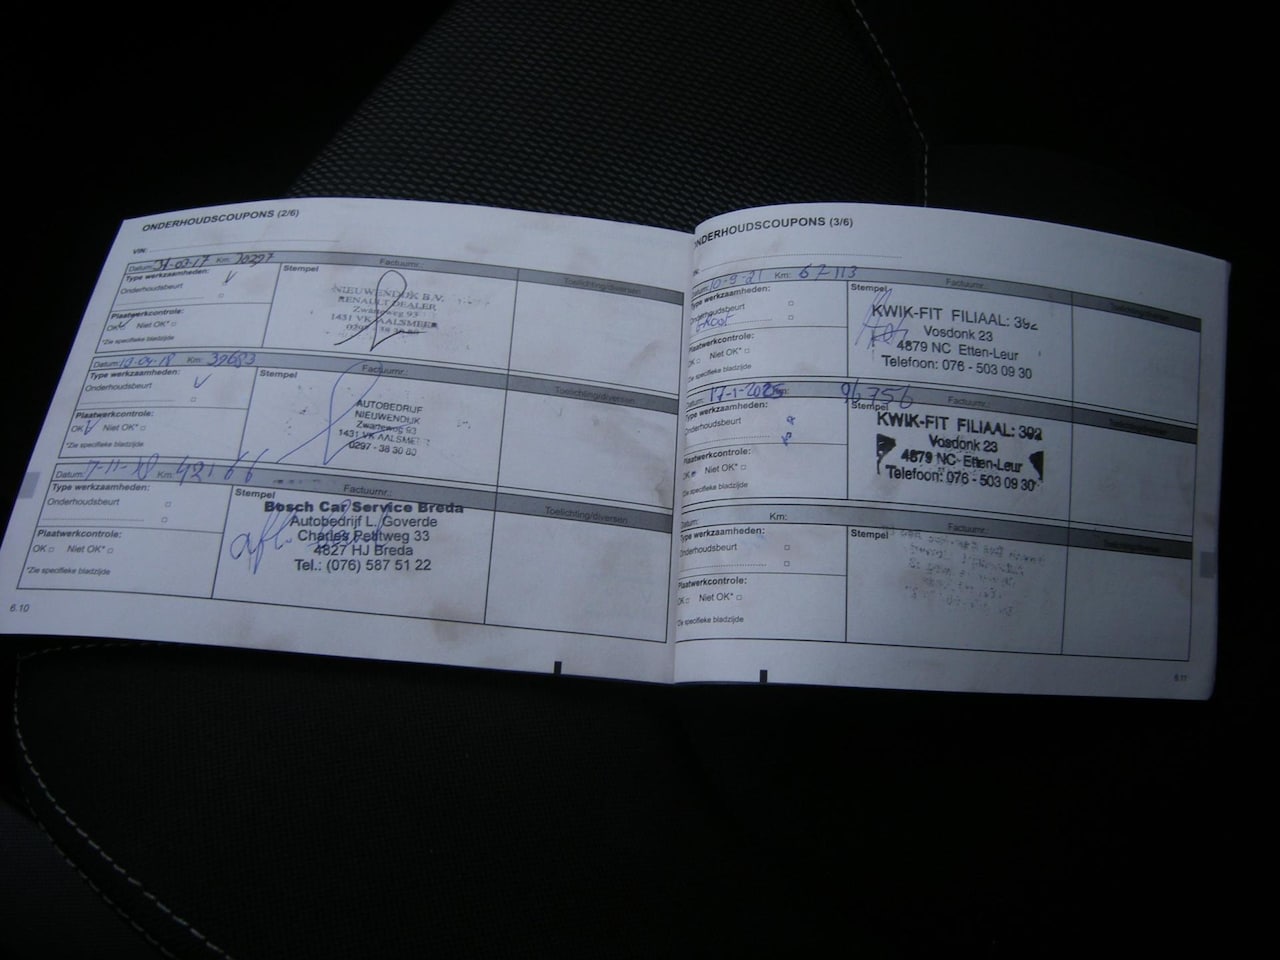 ONDERHOUDSCOUPONS (2/6)
VIN:
Datum: 31-03-17 Km: 30297
Type werkzaamheden:
Onderhoudsbeurt
Plaatwerkcontrole:
OK Niet OK*
*Zie specifieke bladzijde
Stempel
Factuurnr.:
Toelichting/diversen
NIEUWENDIJK B.V.
RENAULT DEALER
Zwarteweg 93
1431 VK AALSMEER
0297 - 38 30 80
Datum: 10-04-18 Km: 39683
Type werkzaamheden:
Onderhoudsbeurt
Plaatwerkcontrole:
OK Niet OK*
*Zie specifieke bladzijde
Stempel
Factuurnr.:
Toelichting/diversen
AUTOBEDRIJF
NIEUWENDIJK
Zwarteweg 93
1431 VK AALSMEER
0297 - 38 30 80
Datum: 7-11-18 Km: 42166
Type werkzaamheden:
Onderhoudsbeurt
Plaatwerkcontrole:
OK Niet OK*
*Zie specifieke bladzijde
Stempel
Factuurnr.:
Toelichting/diversen
Bosch Car Service Breda
Autobedrijf L. Goverde
Charles Petitweg 33
4827 HJ Breda
Tel.: (076) 587 51 22
6.10
ONDERHOUDSCOUPONS (3/6)
Datum: 10-9-21 Km: 67113
Type werkzaamheden:
Onderhoudsbeurt
Groot
Plaatwerkcontrole:
OK Niet OK*
Zie specifieke bladzijde
Stempel
Factuurnr.:
Toelichting/diversen
KWIK-FIT FILIAAL: 392
Vosdonk 23
4879 NC Etten-Leur
Telefoon: 076 - 503 09 30
Datum: 17-1-2025 Km: 96756
Type werkzaamheden:
Onderhoudsbeurt
Plaatwerkcontrole:
OK Niet OK*
Zie specifieke bladzijde
Stempel
Factuurnr.:
Toelichting/diversen
KWIK-FIT FILIAAL: 392
Vosdonk 23
4879 NC Etten-Leur
Telefoon: 076 - 503 09 30
Datum: Km:
Type werkzaamheden:
Onderhoudsbeurt
Plaatwerkcontrole:
OK Niet OK*
Zie specifieke bladzijde
Stempel
Factuurnr.:
Toelichting/diversen
6.11